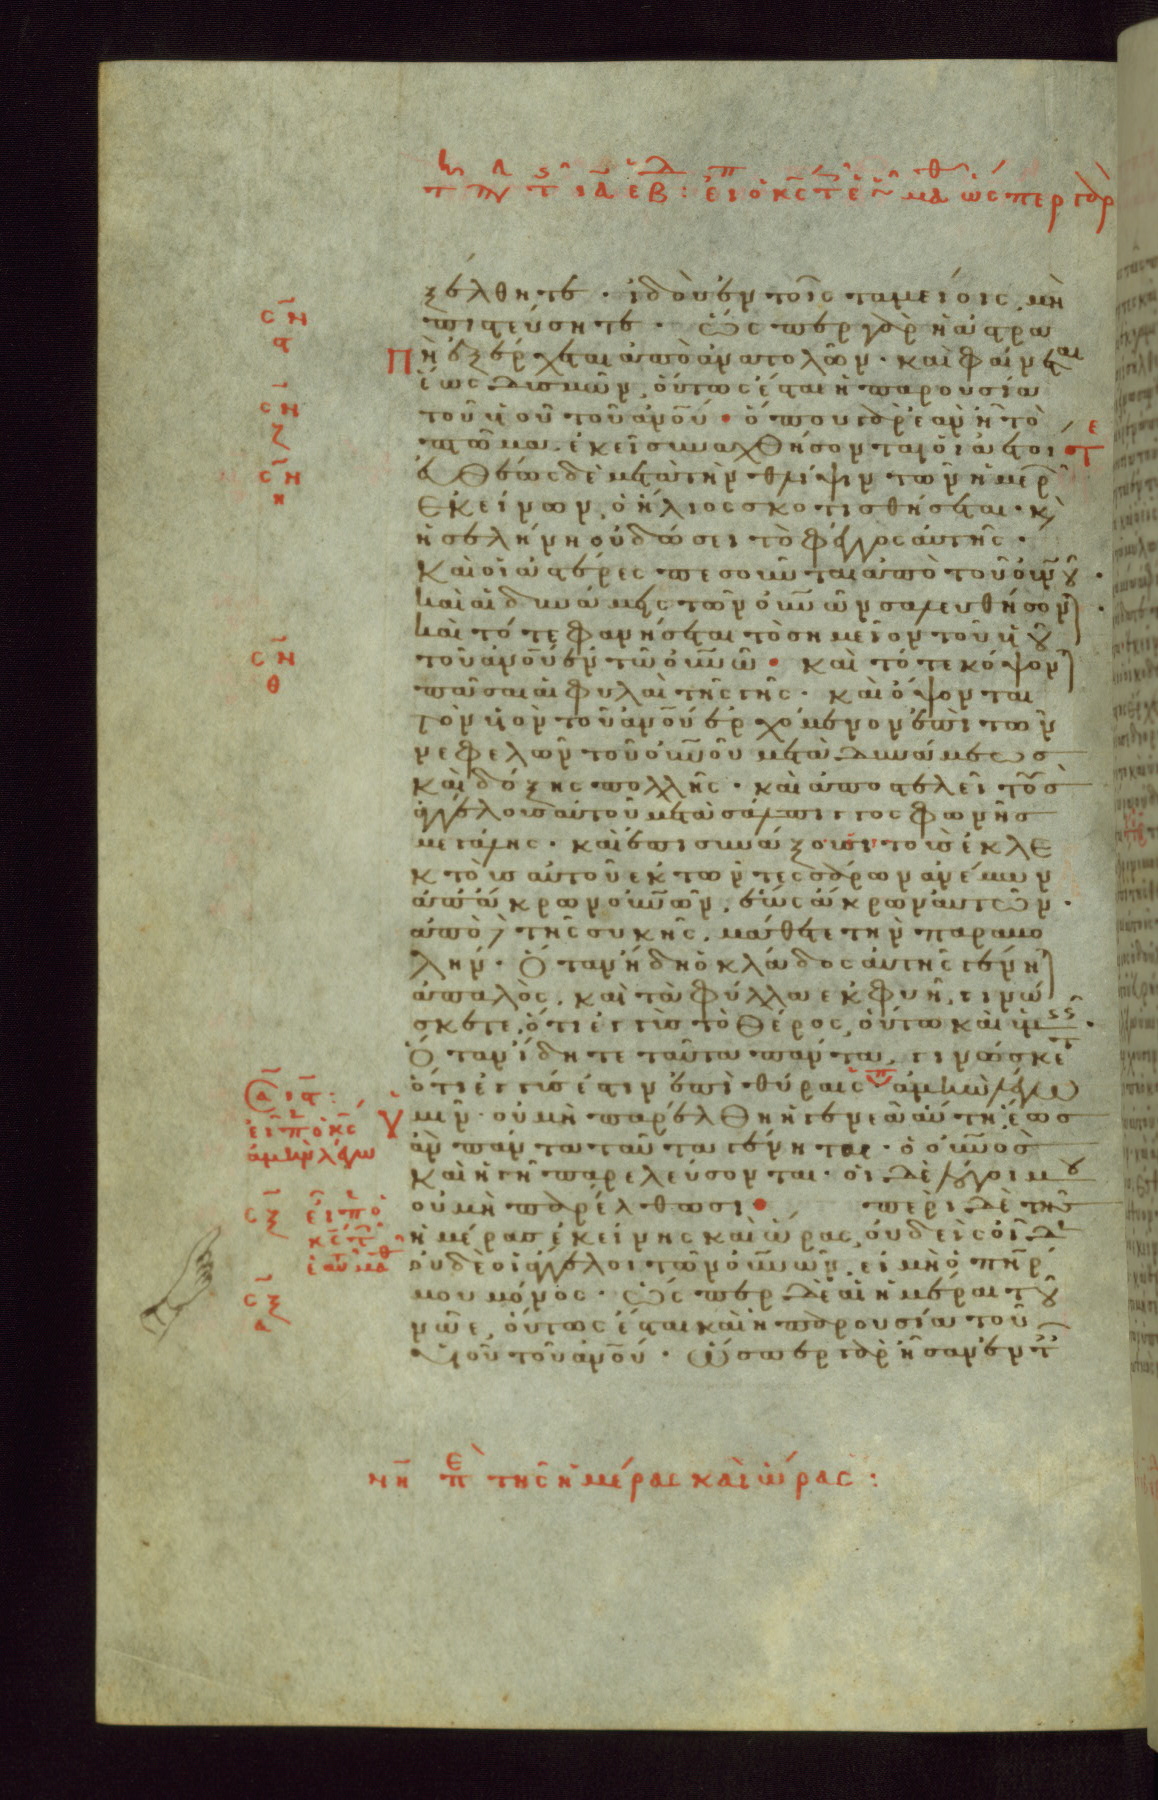 ξέλθητε · ἰδοὺ ἐν τοῖς ταμείοις, μὴ
πιστεύσητε · Ὥσπερ γὰρ ἡ ἀστρα
Πὴ ἐξέρχεται ἀπὸ ἀνατολῶν · καὶ φαίνεται
ἕως δυσμῶν, οὕτως ἔσται ἡ παρουσία
τοῦ υἱοῦ τοῦ ἀν̅ο̅υ̅ · ὅπου γὰρ ἐὰν ἦ τὸ
πτῶμα, ἐκεῖ συναχθήσονται οἱ ἀετοί
εὐθέως δὲ μετὰ τὴν θλίψιν τῶν ἡμερ
ἐκείνων, ὁ ἥλιος σκοτισθήσεται · κ
ἡ σελήνη οὐ δώσει τὸ φέγγος αὐτῆς ·
καὶ οἱ ἀστέρες πεσοῦνται ἀπὸ τοῦ οὐ̅ν̅ου ·
καὶ αἱ δυνάμεις τῶν οὐ̅ν̅ῶν σαλευθήσον ·
καὶ τότε φανήσεται τὸ σημεῖον τοῦ υἱου
τοῦ ἀν̅ο̅ῦ ἐν τῶ οὐ̅ν̅ῶ · καὶ τότε κόψον
πᾶσαι αἱ φυλαὶ τῆς γῆς · καὶ ὄψονται
τὸν υἱὸν τοῦ ἀν̅ο̅ῦ ἐρχόμενον ἐπὶ τῶν
νεφελῶν τοῦ οὐ̅ν̅οῦ μετὰ δυνάμεως
καὶ δόξης πολλῆς · καὶ ἀποστελεῖ τοὺς
ἀγγέλους αὐτοῦ μετὰ σάλπιγγος φωνῆς
μεγάλης · καὶ ἐπισυνάξουσι τοὺς ἐκλε
κτοὺς αὐτοῦ ἐκ τῶν τεσσάρων ἀνέμων
ἀπ' ἄκρων οὐ̅ν̅ῶν, ἕως ἄκρων αὐτῶν ·
ἀπὸ δὲ τῆς συκῆς, μάθετε τὴν παραβο
λήν · Ὅταν ἤδη ὁ κλάδος αὐτῆς γένη
ἁπαλὸς, καὶ τὰ φύλλα ἐκφυῆ, γινώ
σκετε, ὅτι ἐγγὺς τὸ θέρος, οὕτω καὶ ὑμεῖς ·
Ὅταν ἴδητε ταῦτα πάντα, γινώσκετ
ὅτι ἐγγύς ἐστιν ἐπὶ θύραις ἀμὴν λέγω
Ὑμῖν · οὐ μὴ παρέλθη ἡ γενεὰ αὕτη, ἕως
ἂν πάντα ταῦτα γένηται · ὁ οὐ̅ν̅ος
καὶ ἡ γῆ παρελεύσονται · οἱ δὲ λόγοι μου
οὐ μὴ παρέλθωσι · περὶ δὲ τῆς
ἡμέρας ἐκείνης καὶ ὥρας, οὐδεὶς οἶδ
οὐδὲ οἱ ἄγγελοι τῶν οὐ̅ν̅ῶν, εἰ μὴ ὁ π̅η̅ρ̅
μου μόνος · Ὥσπερ δὲ αἱ ἡμέραι του
νῶε, οὕτως ἔσται καὶ ἡ παρουσία τοῦ
υἱοῦ τοῦ ἀν̅ο̅ῦ · Ὥσπερ γὰρ ἦσαν ἐν τ
νη πε τῆς ἡμέρας καὶ ὥρας :